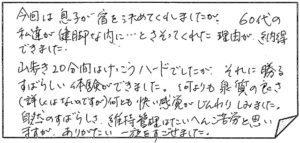 今回は息子が宿を決めてくれましたが、60代の
私達が健脚な内に…とさそってくれた理由が納得
できました。
山歩き20分間はけっこうハードでしたが、それに勝る
すばらしい体験ができました。何よりも泉質の良さ
(詳しくはないですが)何とも快い感覚がじんわりしみました。
自然のすばらしさ、維持管理はたいへんご苦労と思い
ますが、ありがたい一夜をすごせました。